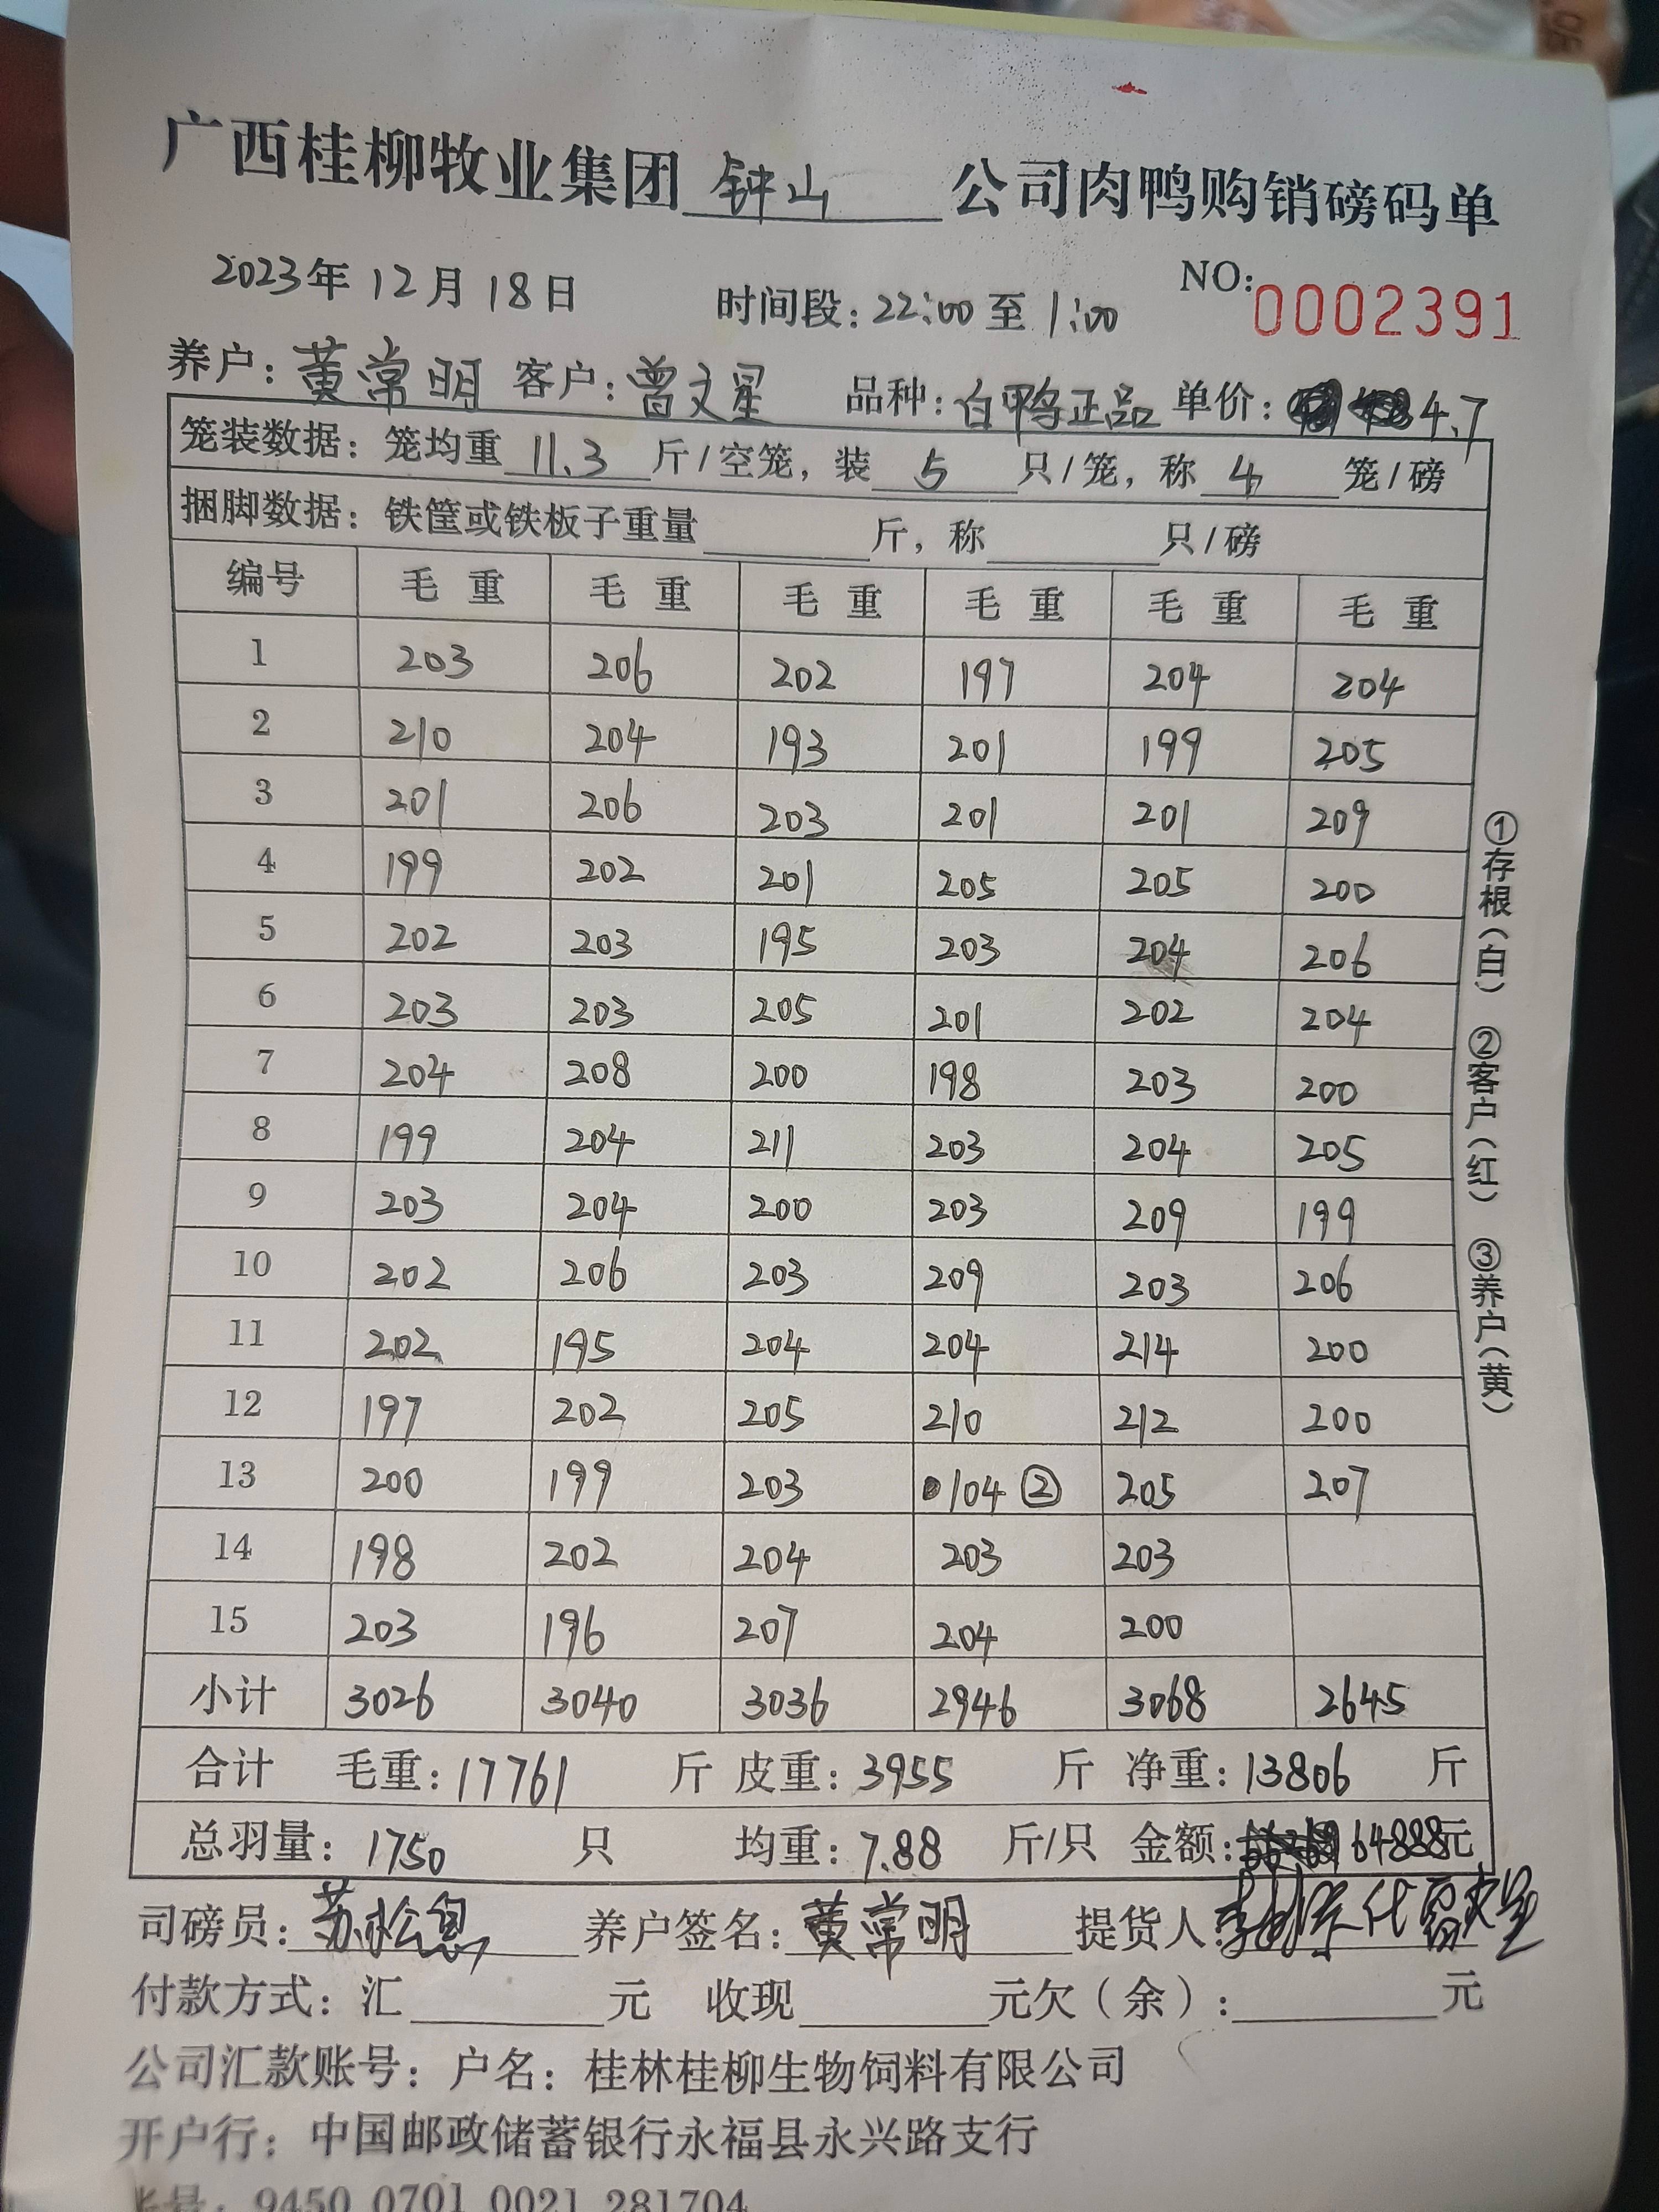 广西桂柳牧业集团 钟山 公司肉鸭购销磅码单
2023年 12月 18日 时间段：22:00 至 1:00 NO: 0002391
养户：黄常明 客户：曾文星 品种：白鸭正品 单价：4.7
笼装数据：笼均重 11.3 斤/空笼，装 5 只/笼，称 4 笼/磅
捆脚数据：铁筐或铁板子重量 斤，称 只/磅
编号 毛重 毛重 毛重 毛重 毛重 毛重
1 203 206 202 197 204 204
2 210 204 193 201 199 205
3 201 206 203 201 201 209
4 199 202 201 205 205 200
5 202 203 195 203 204 206
6 203 203 205 201 202 204
7 204 208 200 198 203 200
8 199 204 211 203 204 205
9 203 204 200 203 209 199
10 202 206 203 209 203 206
11 202 195 204 204 214 200
12 197 202 205 210 212 200
13 200 199 203 104 ② 205 207
14 198 202 204 203 203
15 203 196 207 204 200
小计 3026 3040 3036 2946 3068 2645
合计 毛重：17761 斤 皮重：3955 斤 净重：13806 斤
总羽量：1750 只 均重：7.88 斤/只 金额：64888元
司磅员：苏松 养户签名：黄常明 提货人：代曾文星
付款方式：汇 元 收现 元欠（余）： 元
公司汇款账号：户名：桂林桂柳生物饲料有限公司
开户行：中国邮政储蓄银行永福县永兴路支行
账号：9450 0701 0021 281704
①存根（白） ②客户（红） ③养户（黄）